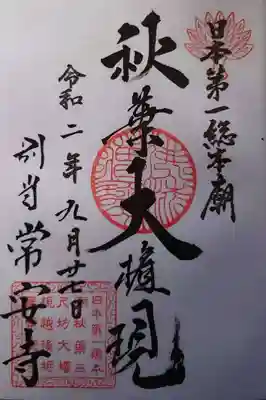 日本第一総本廟
秋葉大権現
令和二年九月廿七日
別当常安寺
日本第一總本
廟秋葉三
尺坊大權
現越後栃